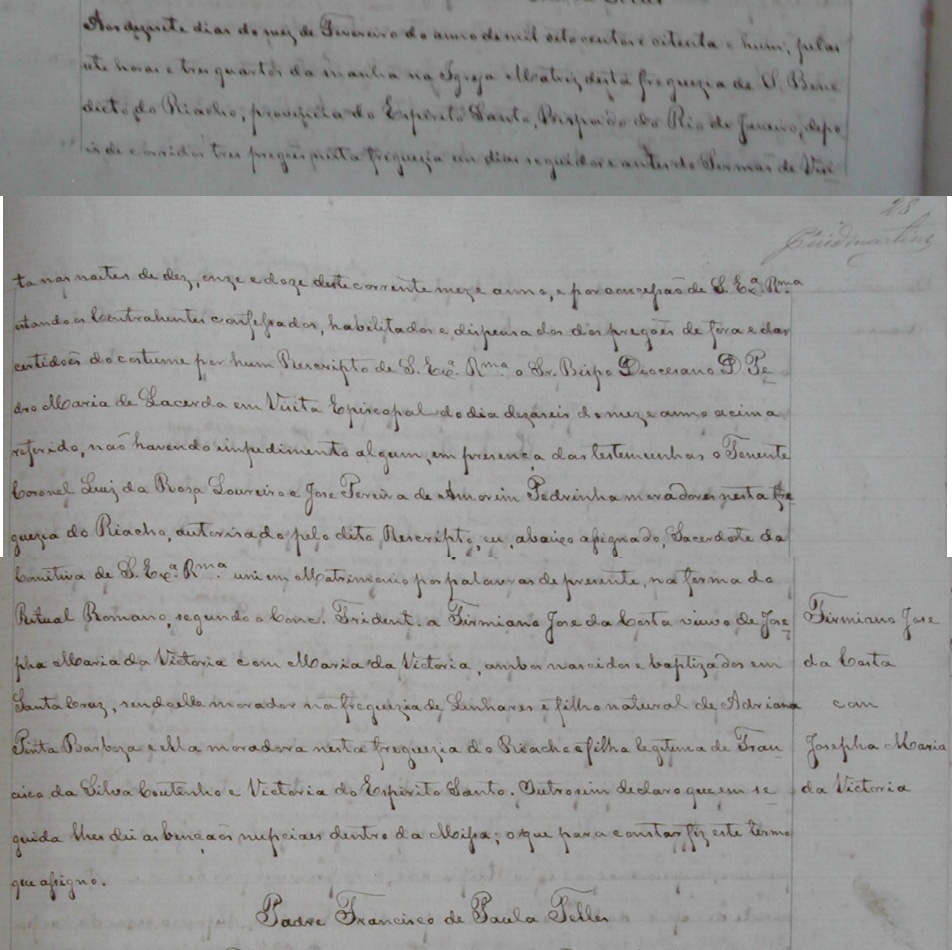 Aos dezesete dias do mez de Fevereiro do anno de mil oito centos e oitenta e hum, pelas
sete horas e tres quartos da manhã na Igreja Matriz desta freguezia de S. Bene
dicto do Riacho, provincia do Espirito Santo, Bispado do Rio de Janeiro, depo
is de corridos tres pregões nesta freguezia em dias seguidos e antes do Sermão de Visi
28
ta nas noites de dez, onze e doze deste corrente mez e anno, e por concessão de S. Exª. Rmª
estando os Contrahentes confessados, habilitados e dispensados dos pregões de fora e das
certidoẽs do costume por hum Rescripto de S. Exª. Rmª o Sr. Bispo Diocesano D. Pe
dro Maria de Lacerda em Visita Episcopal do dia dezaseis do mez e anno acima
referido, não havendo impedimento algum, em presença das testemunhas o Tenente
Coronel Luiz da Roza Loureiro e Jose Pereira de Amorim Pedrinha moradores nesta fre
guezia do Riacho, autorisado pelo dito Rescripto, eu, abaixo assignado, Sacerdote da
Comitiva de S. Exª. Rmª uni em Matrimonio por palavras de presente, na forma do
Ritual Romano, segundo o Conc. Trident. a Firmiano Jose da Costa viuvo de Jose
pha Maria da Victoria com Maria da Victoria, ambos nascidos e baptizados em
Santa Cruz, sendo elle morador na freguezia de Linhares e filho natural de Adriana
Pinta Barboza e ella moradora nesta freguezia do Riacho e filha legitima de Fran
cisco da Silva Coutinho e Victoria do Espirito Santo. Outrosim declaro que em se
guida lhes dei as bençaõs nupciaes dentro da Missa; o que para constar fiz este termo
que assigno.
Padre Francisco de Paula Telles
Firmiano Jose
da Costa
con
Josepha Maria
da Victoria